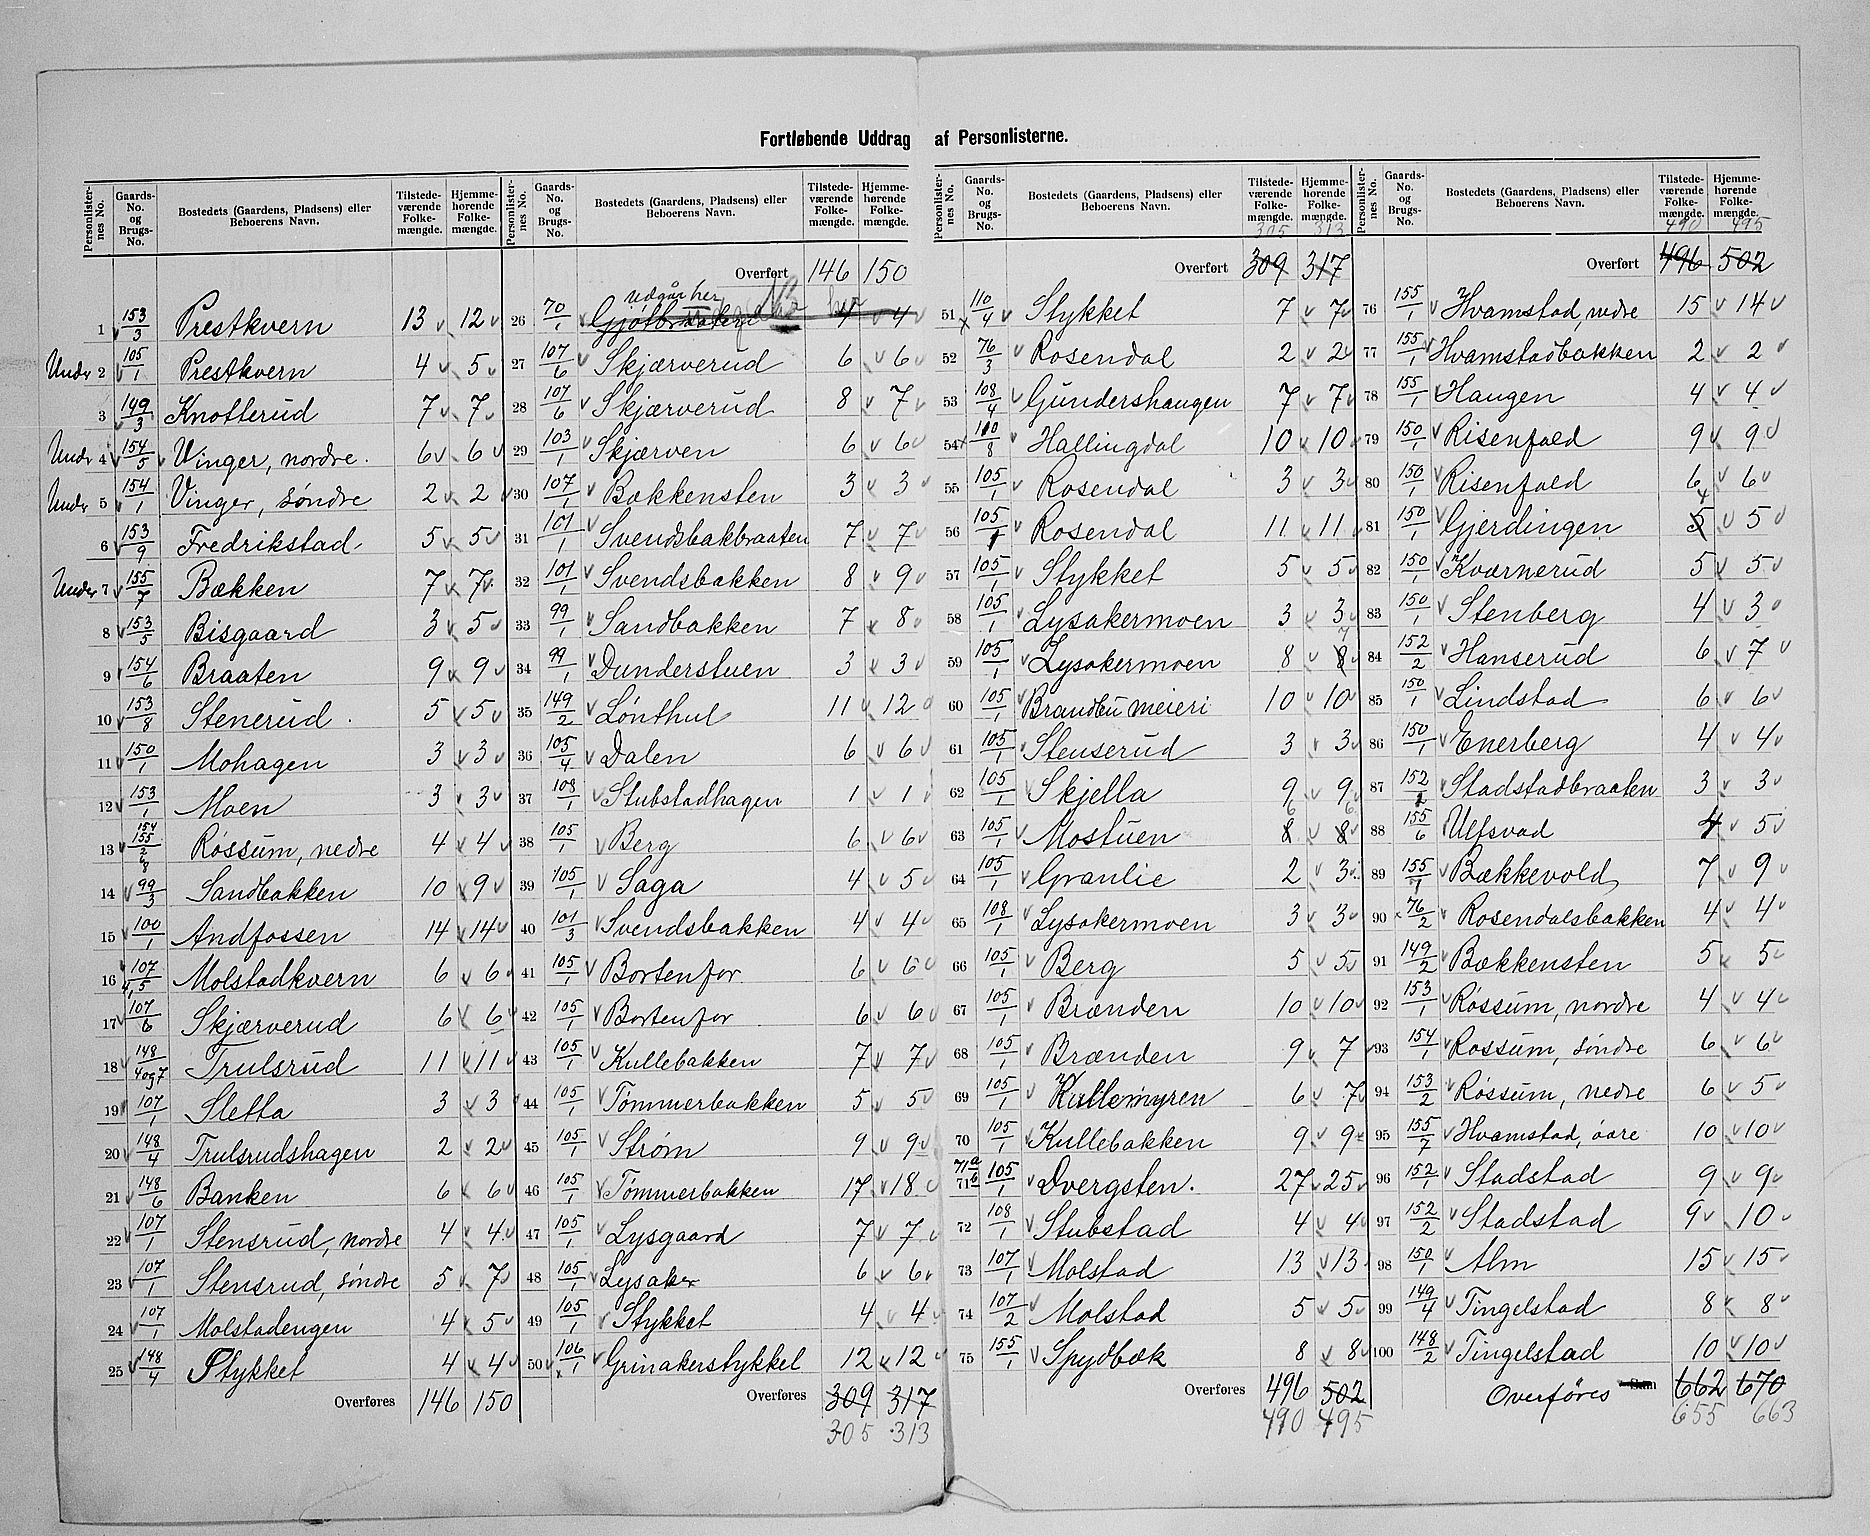 Fortløbende Uddrag af Personlisterne.
Personlisternes No. Gaards-No. og Brugs-No. Bostedets (Gaardens, Pladsens) eller Beboerens Navn. Tilstedeværende Folkemængde. Hjemmehørende Folkemængde.
1 153/3 Prestkvern 13 12
Under 2 105/1 Prestkvern 4 5
3 149/3 Knotterud 7 7
Under 4 154/5 Vinger, nordre. 6 6
Under 5 154/1 Vinger, søndre 2 2
6 153/9 Fredrikstad 5 5
Under 7 155/7 Bækken 7 7
8 153/5 Bisgaard 3 5
9 154/6 Braaten 9 9
10 153/8 Stenerud 5 5
11 150/1 Mohagen 3 3
12 153/1 Moen 3 3
13 154 155/2 6 8 Røssum, nedre 4 4
14 99/3 Sandbakken 10 9
15 100/1 Andfossen 14 14
16 107/4,5 Molstadkvern 6 6
17 107/6 Skjærverud 6 6
18 148/4og7 Trulsrud 11 11
19 107/1 Sletta 3 3
20 148/4 Trulsrudshagen 2 2
21 148/6 Banken 6 6
22 107/1 Stensrud, nordre 4 4
23 107/1 Stensrud, søndre 5 7
24 107/1 Molstadengen 4 5
25 148/4 Stykket 4 4
Overføres 146 150
Personlisternes No. Gaards-No. og Brugs-No. Bostedets (Gaardens, Pladsens) eller Beboerens Navn. Tilstedeværende Folkemængde. Hjemmehørende Folkemængde.
Overført 146 150
Udgår her
26 70/1 4 4
27 107/6 Skjærverud 6 6
28 107/6 Skjærverud 8 7
29 103/1 Skjærven 6 6
30 107/1 Bækkensten 3 3
31 101/1 Svendsbakbraaten 7 7
32 101/1 Svendsbakken 8 9
33 99/1 Sandbakken 7 8
34 99/1 Dunderstuen 3 3
35 149/2 Lønthul 11 12
36 105/4 Dalen 6 6
37 108/1 Stubstadhagen 1 1
38 105/1 Berg 6 6
39 105/1 Saga 4 5
40 101/3 Svendsbakken 4 4
41 105/1 Bortenfor 6 6
42 105/1 Bortenfor 6 6
43 105/1 Kullebakken 7 7
44 105/1 Tømmerbakken 5 5
45 105/1 Strøm 9 9
46 105/1 Tømmerbakken 17 18
47 105/1 Lysgaard 7 7
48 105/1 Lysaker 6 6
49 105/1 Stykket 4 4
50 106/1 Grinakerstykket 12 12
Overføres 309 317
305 313
Personlisternes No. Gaards-No. og Brugs-No. Bostedets (Gaardens, Pladsens) eller Beboerens Navn. Tilstedeværende Folkemængde. Hjemmehørende Folkemængde.
305 313
Overført 309 317
51 110/4 Stykket 7 7
52 76/3 Rosendal 2 2
53 108/4 Gundershaugen 7 7
54 110/8 Hallingdal 10 10
55 105/1 Rosendal 3 3
56 105/1 Rosendal 11 11
57 105/1 Stykket 5 5
58 105/1 Lysakermoen 3 3
59 105/1 Lysakermoen 8 8 7
60 105/1 Brandbu meieri 10 10
61 105/1 Stenserud 3 3
62 105/1 Skjella 9 9
63 105/1 Mostuen 8 6 8 6
64 105/1 Granlie 2 3
65 108/1 Lysakermoen 3 3
66 105/1 Berg 5 5
67 105/1 Brænden 10 10
68 105/1 Brænden 9 7
69 105/1 Kullemyren 6 7
70 105/1 Kullebakken 9 9
71a 71b 105/1 Dvergsten. 27 25
72 108/1 Stubstad 4 4
73 107/1 Molstad 13 13
74 107/2 Molstad 5 5
75 155/1 Spydbæk 8 8
Overføres 496 502
490 495
Personlisternes No. Gaards-No. og Brugs-No. Bostedets (Gaardens, Pladsens) eller Beboerens Navn. Tilstedeværende Folkemængde. Hjemmehørende Folkemængde.
490 495
Overført 496 502
76 155/1 Hvamstad, nedre 15 14
77 155/1 Hvamstadbakken 2 2
78 155/1 Haugen 4 4
79 150/1 Risenfald 9 9
80 150/1 Risenfald 6 6
81 150/1 Gjerdingen 5 4 5
82 150/1 Kværnerud 5 5
83 150/1 Stenberg 4 3
84 152/2 Hanserud 6 7
85 150/1 Lindstad 6 6
86 150/1 Enerberg 4 4
87 152/2 Stadstadbraaten 3 3
88 155/6 Ulfsvad 4 5
89 155/1 Bækkevold 7 9
90 76/2 Rosendalsbakken 4 4
91 149/2 Bækkensten 5 5
92 153/1 Røssum, nordre 4 4
93 154/1 Røssum, søndre 6 6
94 153/2 Røssum, nedre 6 5
95 155/7 Hvamstad, øvre 10 10
96 152/1 Stadstad 9 9
97 152/2 Stadstad 9 10
98 150/1 Alm 15 15
99 149/4 Tingelstad 8 8
100 148/2 Tingelstad 10 10
Overføres 662 670
655 663